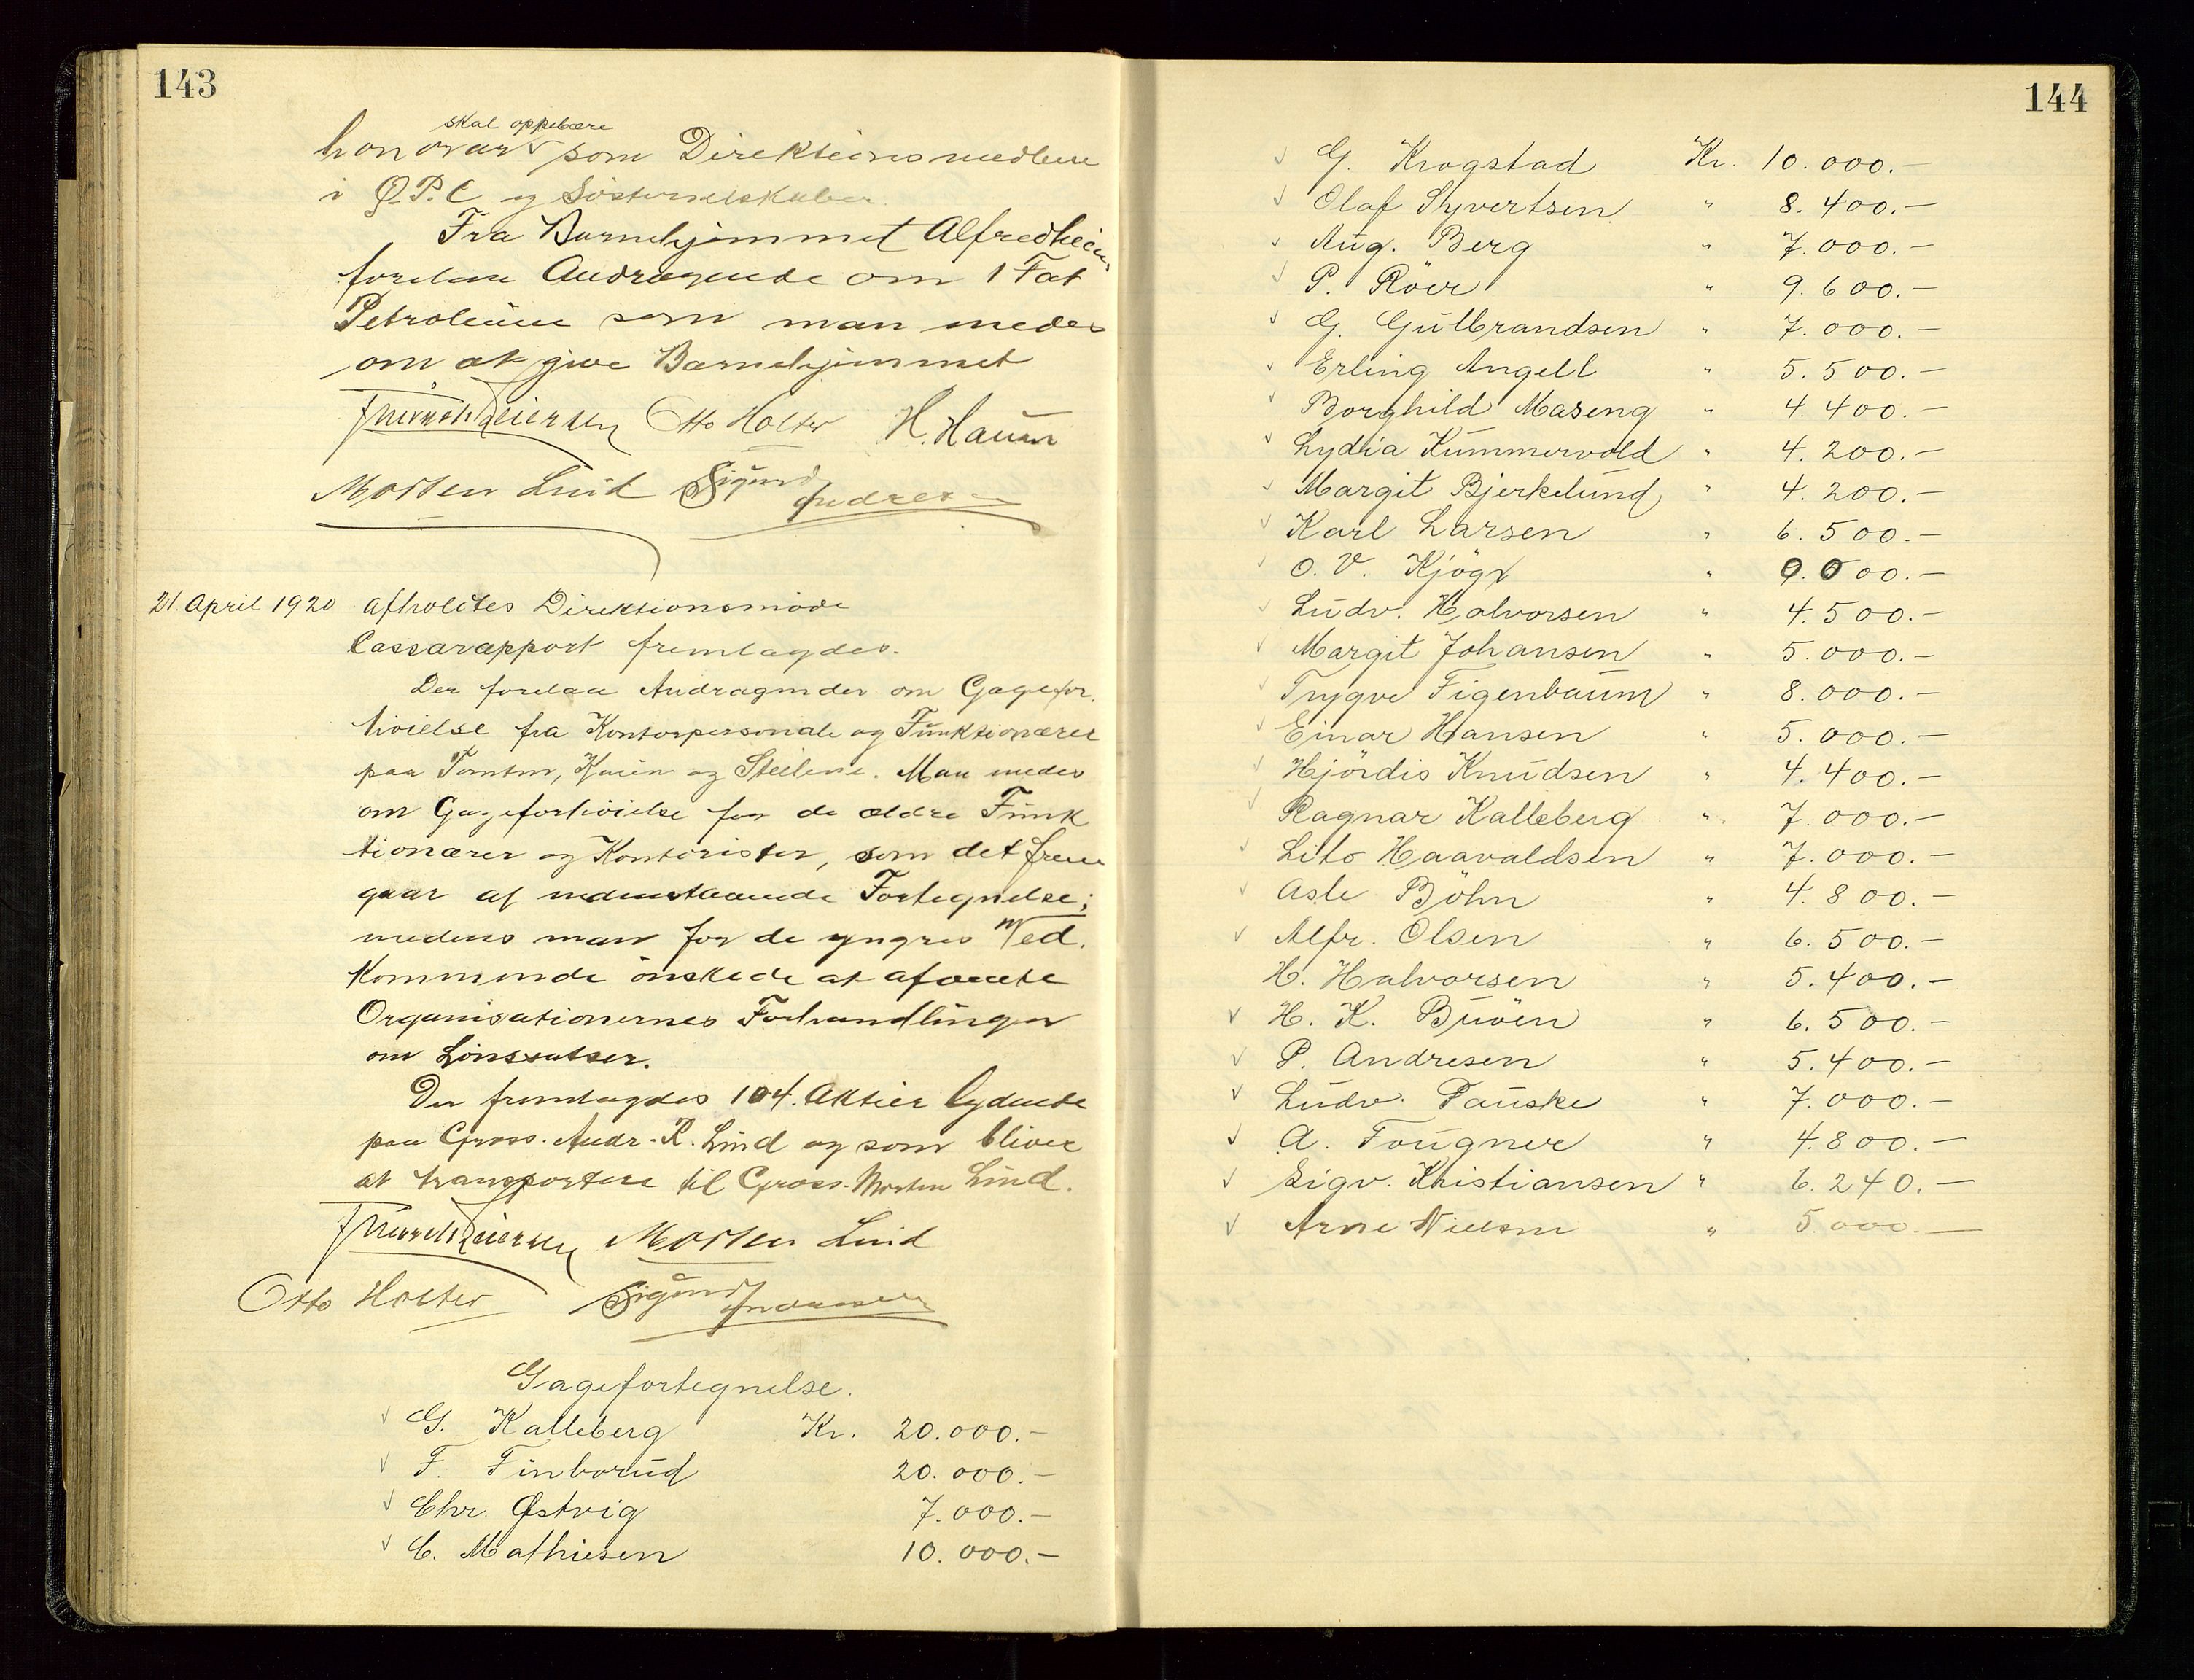 143
skal oppebære
honorar som Direktionsmedlem
i Ø.P.C og Sösterselskaber.
Fra Barnehjemmet Alfredheim
forelaa Andragende om 1 Fat
Petroleum som man enedes
om at give Barnehjemmet
Otto Holter H. Hansen
Morten Lind Sigurd
Andresen
21. April 1920 afholdtes Direktionsmöde
Cassarapport fremlagdes.
Der forelaa Andragender om Gagefor-
höielse fra Kontorpersonale og Funktionærer
paa Tomten, Kaien og Steilene. Man enedes
om Gageforhöielse for de ældre Funk
tionærer og Kontorister, som det frem
gaar af nedenstaaende Fortegnelse;
medens man for de yngres Ved.
kommende önskede at afvente
Organisationernes Forhandlinger
om Lönssatser.
Der fremlagdes 104. Aktier lydende
paa Gross. Andr. R. Lind og som bliver
at transportere til Gross. Morten Lind.
Morten Lind
Otto Holter Sigurd Andresen
Gagefortegnelse.
G. Kalleberg Kr. 20.000.-
F. Finborud 20.000.-
Chr. Østvig 7.000.-
C. Mathiesen 10.000.-
144
G. Krogstad Kr. 10.000.-
Olaf Syvertsen " 8.400.-
Aug. Berg " 7.000.-
P. Röer " 9.600.-
G. Gulbrandsen " 7.000.-
Erling Angell " 5.500.-
Borghild Maseng " 4.400.-
Lydia Kummervold " 4.200.-
Margit Bjerkelund " 4.200.-
Karl Larsen " 6.500.-
O. V. Kjögx " 9.000.-
Ludv. Halvorsen " 4.500.-
Margit Johansen " 5.000.-
Trygve Figenbaum " 8.000.-
Einar Hansen " 5.000.-
Hjördis Knudsen " 4.400.-
Ragnar Kalleberg " 7.000.-
Lito Haavaldsen " 7.000.-
Asle Böhn " 4.800.-
Alfr. Olsen " 6.500.-
H. Halvorsen " 5.400.-
H. K. Buöen " 6.500.-
P. Andresen " 5.400.-
Ludv. Pauske " 7.000.-
A. Fougner " 4.800.-
Sigv. Kristiansen " 6.240.-
Arne Nielsen " 5.000.-